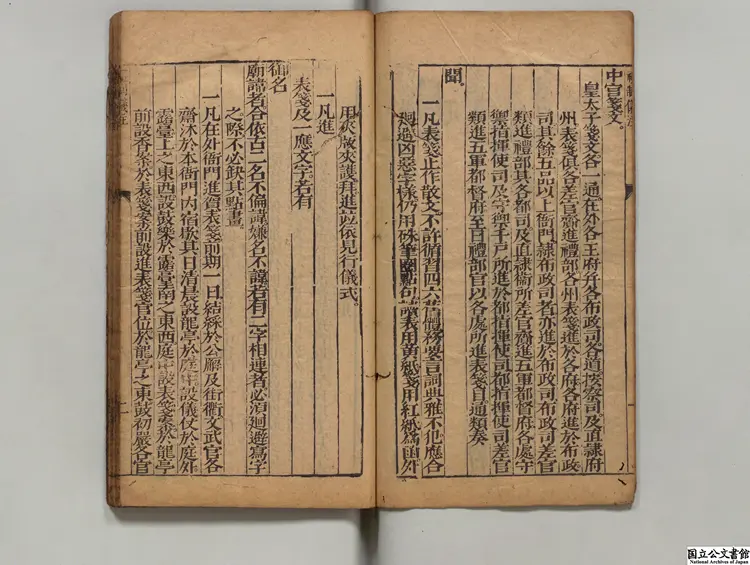 中宮箋文。
皇太子箋文各一通在外各王府并各布政司各道按察司及直隸府
州表箋俱各差官齎進禮部各州表箋進於各府各府進於布政
司其餘五品以上衙門隸布政司者亦進於布政司布政司差官
類進禮部其各都司及直隸衛所差官齎進五軍都督府各處守
禦指揮使司及守禦千戶所進於都指揮使司都指揮使司差官
類進五軍都督府至日禮部官以各處所進表箋目通類奏
聞。
一凡表箋止作散文不許循習四六舊體務要言詞典雅不犯應合
迴避凶惡字樣仍用硃筆圈點句讀表用黃紙箋用紅紙為函外
用夾版夾護拜進並依見行儀式。
一凡進
表箋及一應文字若有
御名
廟諱者合依古二名不偏諱嫌名不諱若有二字相連者必須迴避寫字
之際不必缺其點畫。
一凡在外衙門進賀表箋前期一日結綵於公廨及街衢文武官各
齋沐於本衙門內宿歇其日清晨設龍亭於庭中設儀仗於庭外
露臺上之東西設鼓樂於露臺南之東西庭中設表箋案於龍亭
前設香案於表箋案前設進表箋官位於龍亭之東鼓初嚴各官
国立公文書館
National Archives of Japan